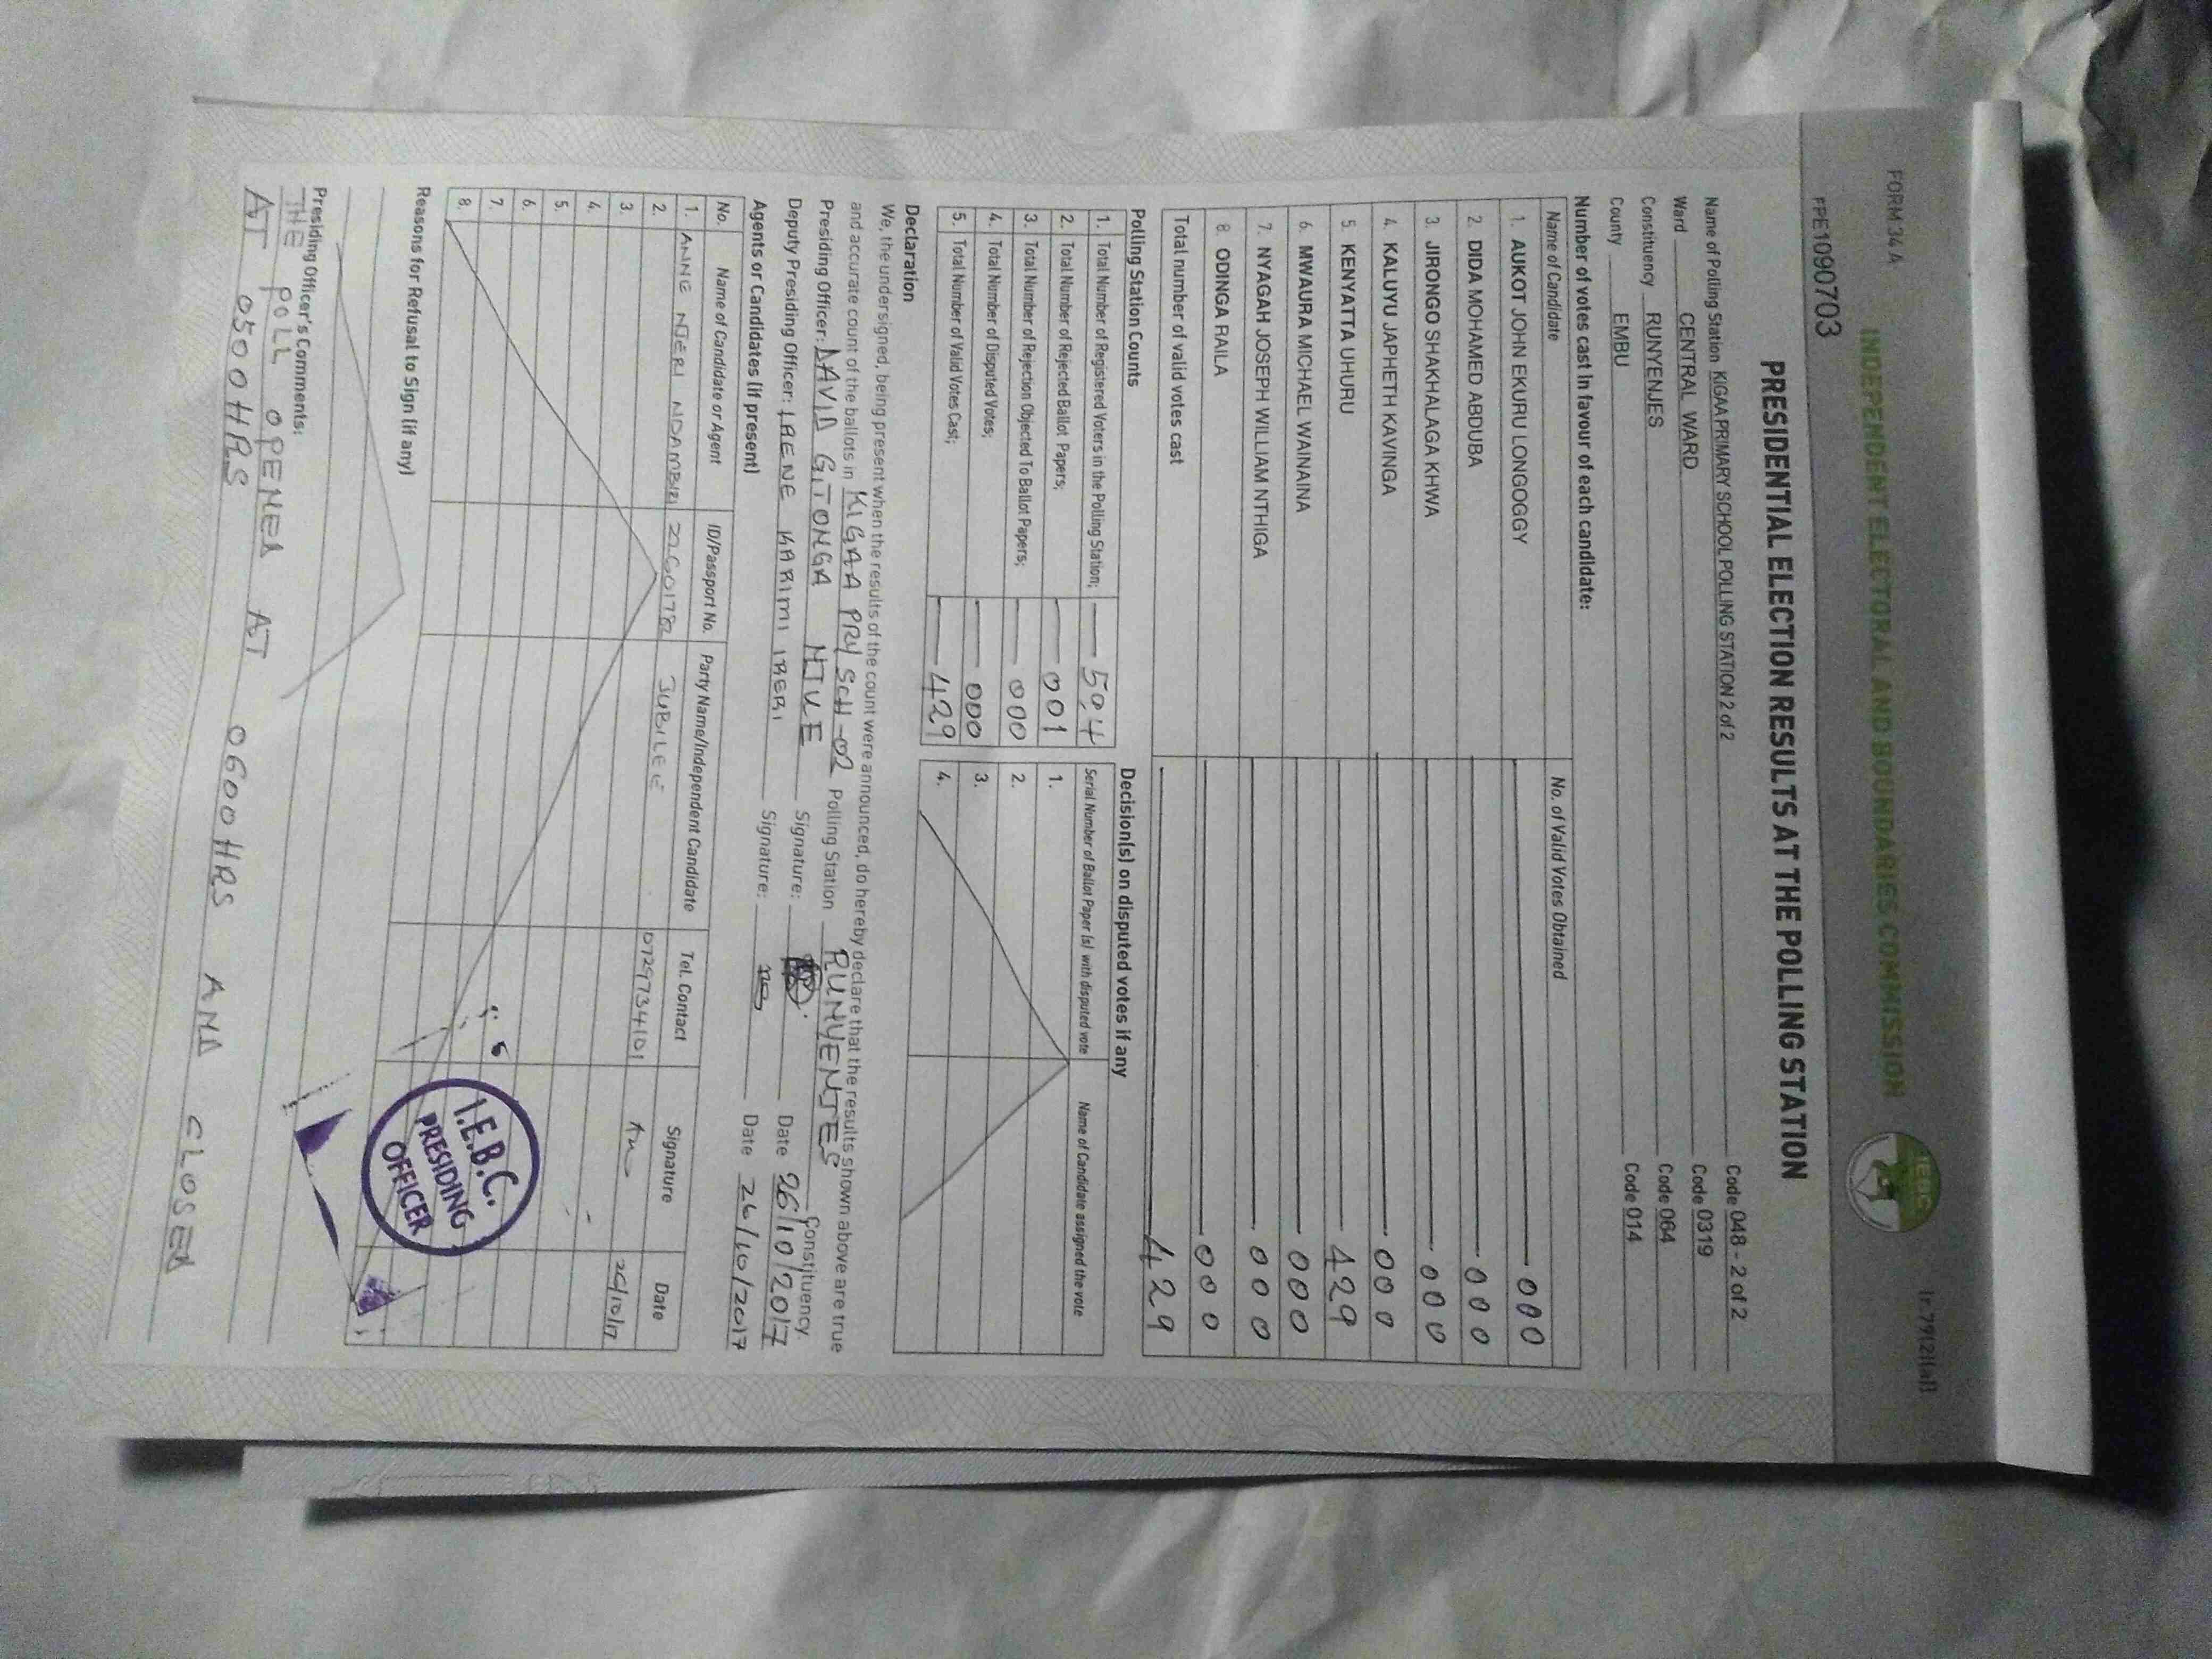 FORM 34 A
INDEPENDENT ELECTORAL AND BOUNDARIES COMMISSION
IEBC
(r.79(2)(a))
FPE1090703
PRESIDENTIAL ELECTION RESULTS AT THE POLLING STATION
Name of Polling Station KIGAA PRIMARY SCHOOL POLLING STATION 2 of 2 Code 048 - 2 of 2
Ward CENTRAL WARD Code 0319
Constituency RUNYENJES Code 064
County EMBU Code 014
Number of votes cast in favour of each candidate:
Name of Candidate No. of Valid Votes Obtained
1. AUKOT JOHN EKURU LONGOGGY 000
2. DIDA MOHAMED ABDUBA 000
3. JIRONGO SHAKHALAGA KHWA 000
4. KALUYU JAPHETH KAVINGA 000
5 KENYATTA UHURU 429
6. MWAURA MICHAEL WAINAINA 000
7. NYAGAH JOSEPH WILLIAM NTHIGA 000
8. ODINGA RAILA 000
Total number of valid votes cast 429
Polling Station Counts
1. Total Number of Registered Voters in the Polling Station; 504
2. Total Number of Rejected Ballot Papers; 001
3. Total Number of Rejection Objected To Ballot Papers; 000
4. Total Number of Disputed Votes; 000
5. Total Number of Valid Votes Cast; 429
Decision(s) on disputed votes if any
Serial Number of Ballot Paper (s) with disputed vote Name of Candidate assigned the vote
1.
2.
3.
4.
Declaration
We, the undersigned, being present when the results of the count were announced, do hereby declare that the results shown above are true
and accurate count of the ballots in KIGAA PRY SCH-02 Polling Station RUNYENJES Constituency
Presiding Officer: DAVID GITONGA NJUE Signature: Date 26/10/2017
Deputy Presiding Officer: IRENE KARIMI IRERI Signature: Date 26/10/2017
Agents or Candidates (if present)
No. Name of Candidate or Agent ID/Passport No. Party Name/Independent Candidate Tel. Contact Signature Date
1. ANNE NJERI NDAMBIRI 22601782 JUBILEE 0729734101 26/10/17
2.
3.
4.
5.
6.
7.
8.
I.E.B.C.
PRESIDING
OFFICER
Reasons for Refusal to Sign (if any)
Presiding Officer's Comments:
THE POLL OPENED AT 0600HRS AND CLOSED
AT 0500HRS